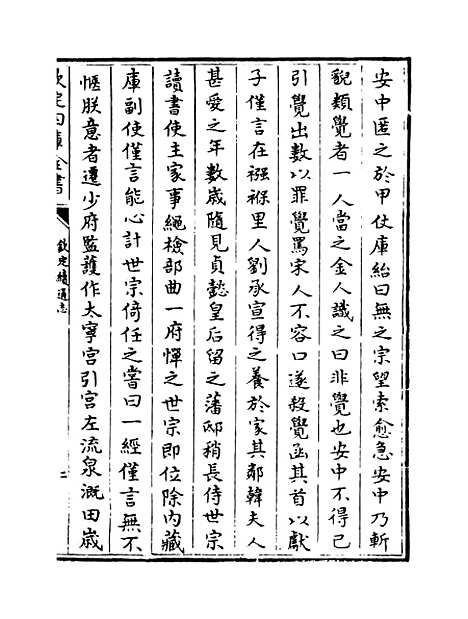 安中匿之於甲仗庫紿曰無之宗望索愈急安中乃斬
貌類覺者一人當之金人識之曰非覺也安中不得已
引覺出數以罪覺罵宋人不容口遂殺覺函其首以獻
子僅言在襁褓里人劉承宣得之養於家其鄰韓夫人
甚愛之年數歲隨見貞懿皇后留之藩邸稍長侍世宗
讀書使主家事繩檢部曲一府憚之世宗即位除内藏
庫副使僅言能心計世宗倚任之嘗曰一經僅言無不
愜朕意者遷少府監護作太寧宮引宮左流泉溉田歲
欽定四庫全書
欽定續通志
二